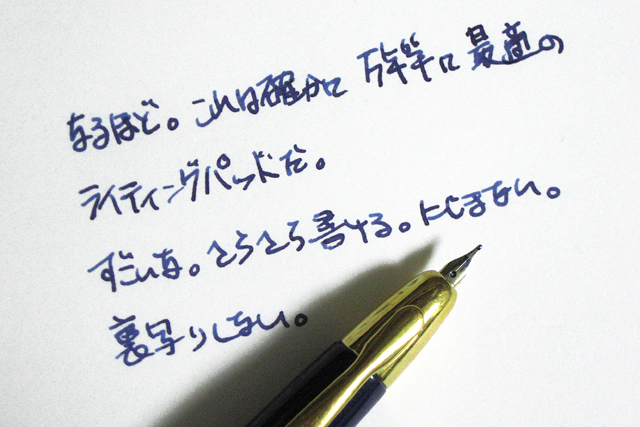 なるほど。これは確かに万年筆に最適の
ライティングパッドだ。
すごいな。さらさら書ける。にじまない。
裏写りしない。